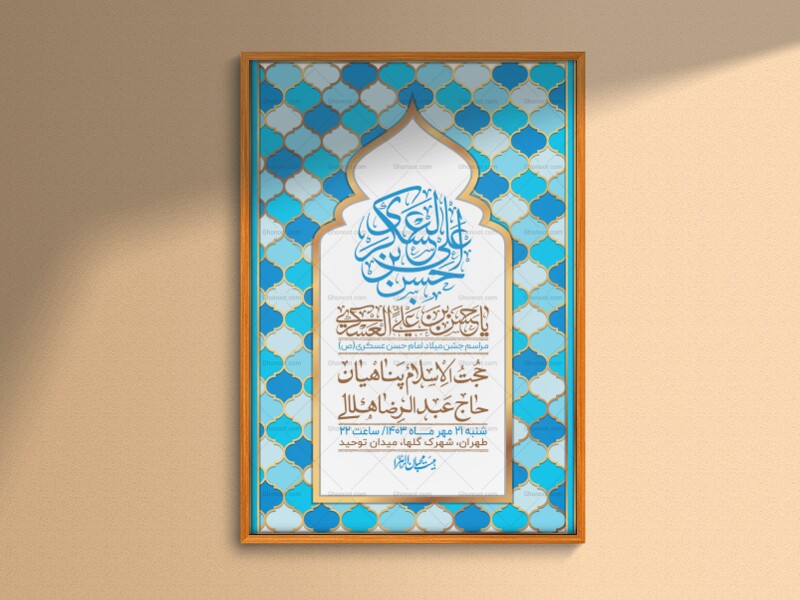 حسن بن علی العسکری
یا حسن بن علی العسکری
مراسم جشن میلاد امام حسن عسکری(ص)
حجت الاسلام پناهیان
حاج عبدالرضا هلالی
شنبه ۲۱ مهر مــاه ۱۴۰۳/ ساعت ۲۲
طهران، شهرک گلها، میدان توحید
Ghonoot.com